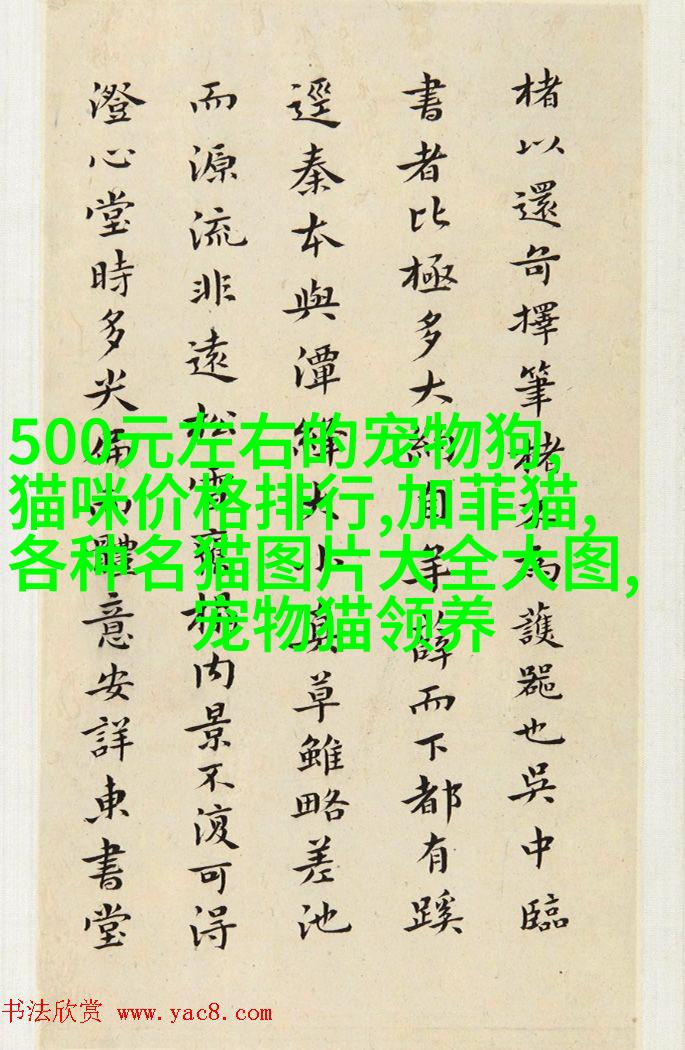 楮以還奇擇筆楮為護器也吳中臨
書者比極多大約自羊薛而下都有蹊
逕秦本與潭絳大小真草雖略差池
而源流非遠松雪內景不復可得
澄心堂時多尖體意安詳東書堂
500元左右的宠物狗,
猫咪价格排行,加菲猫,
各种名猫图片大全大图,
宠物猫领养
书法欣赏 www.yac8.com